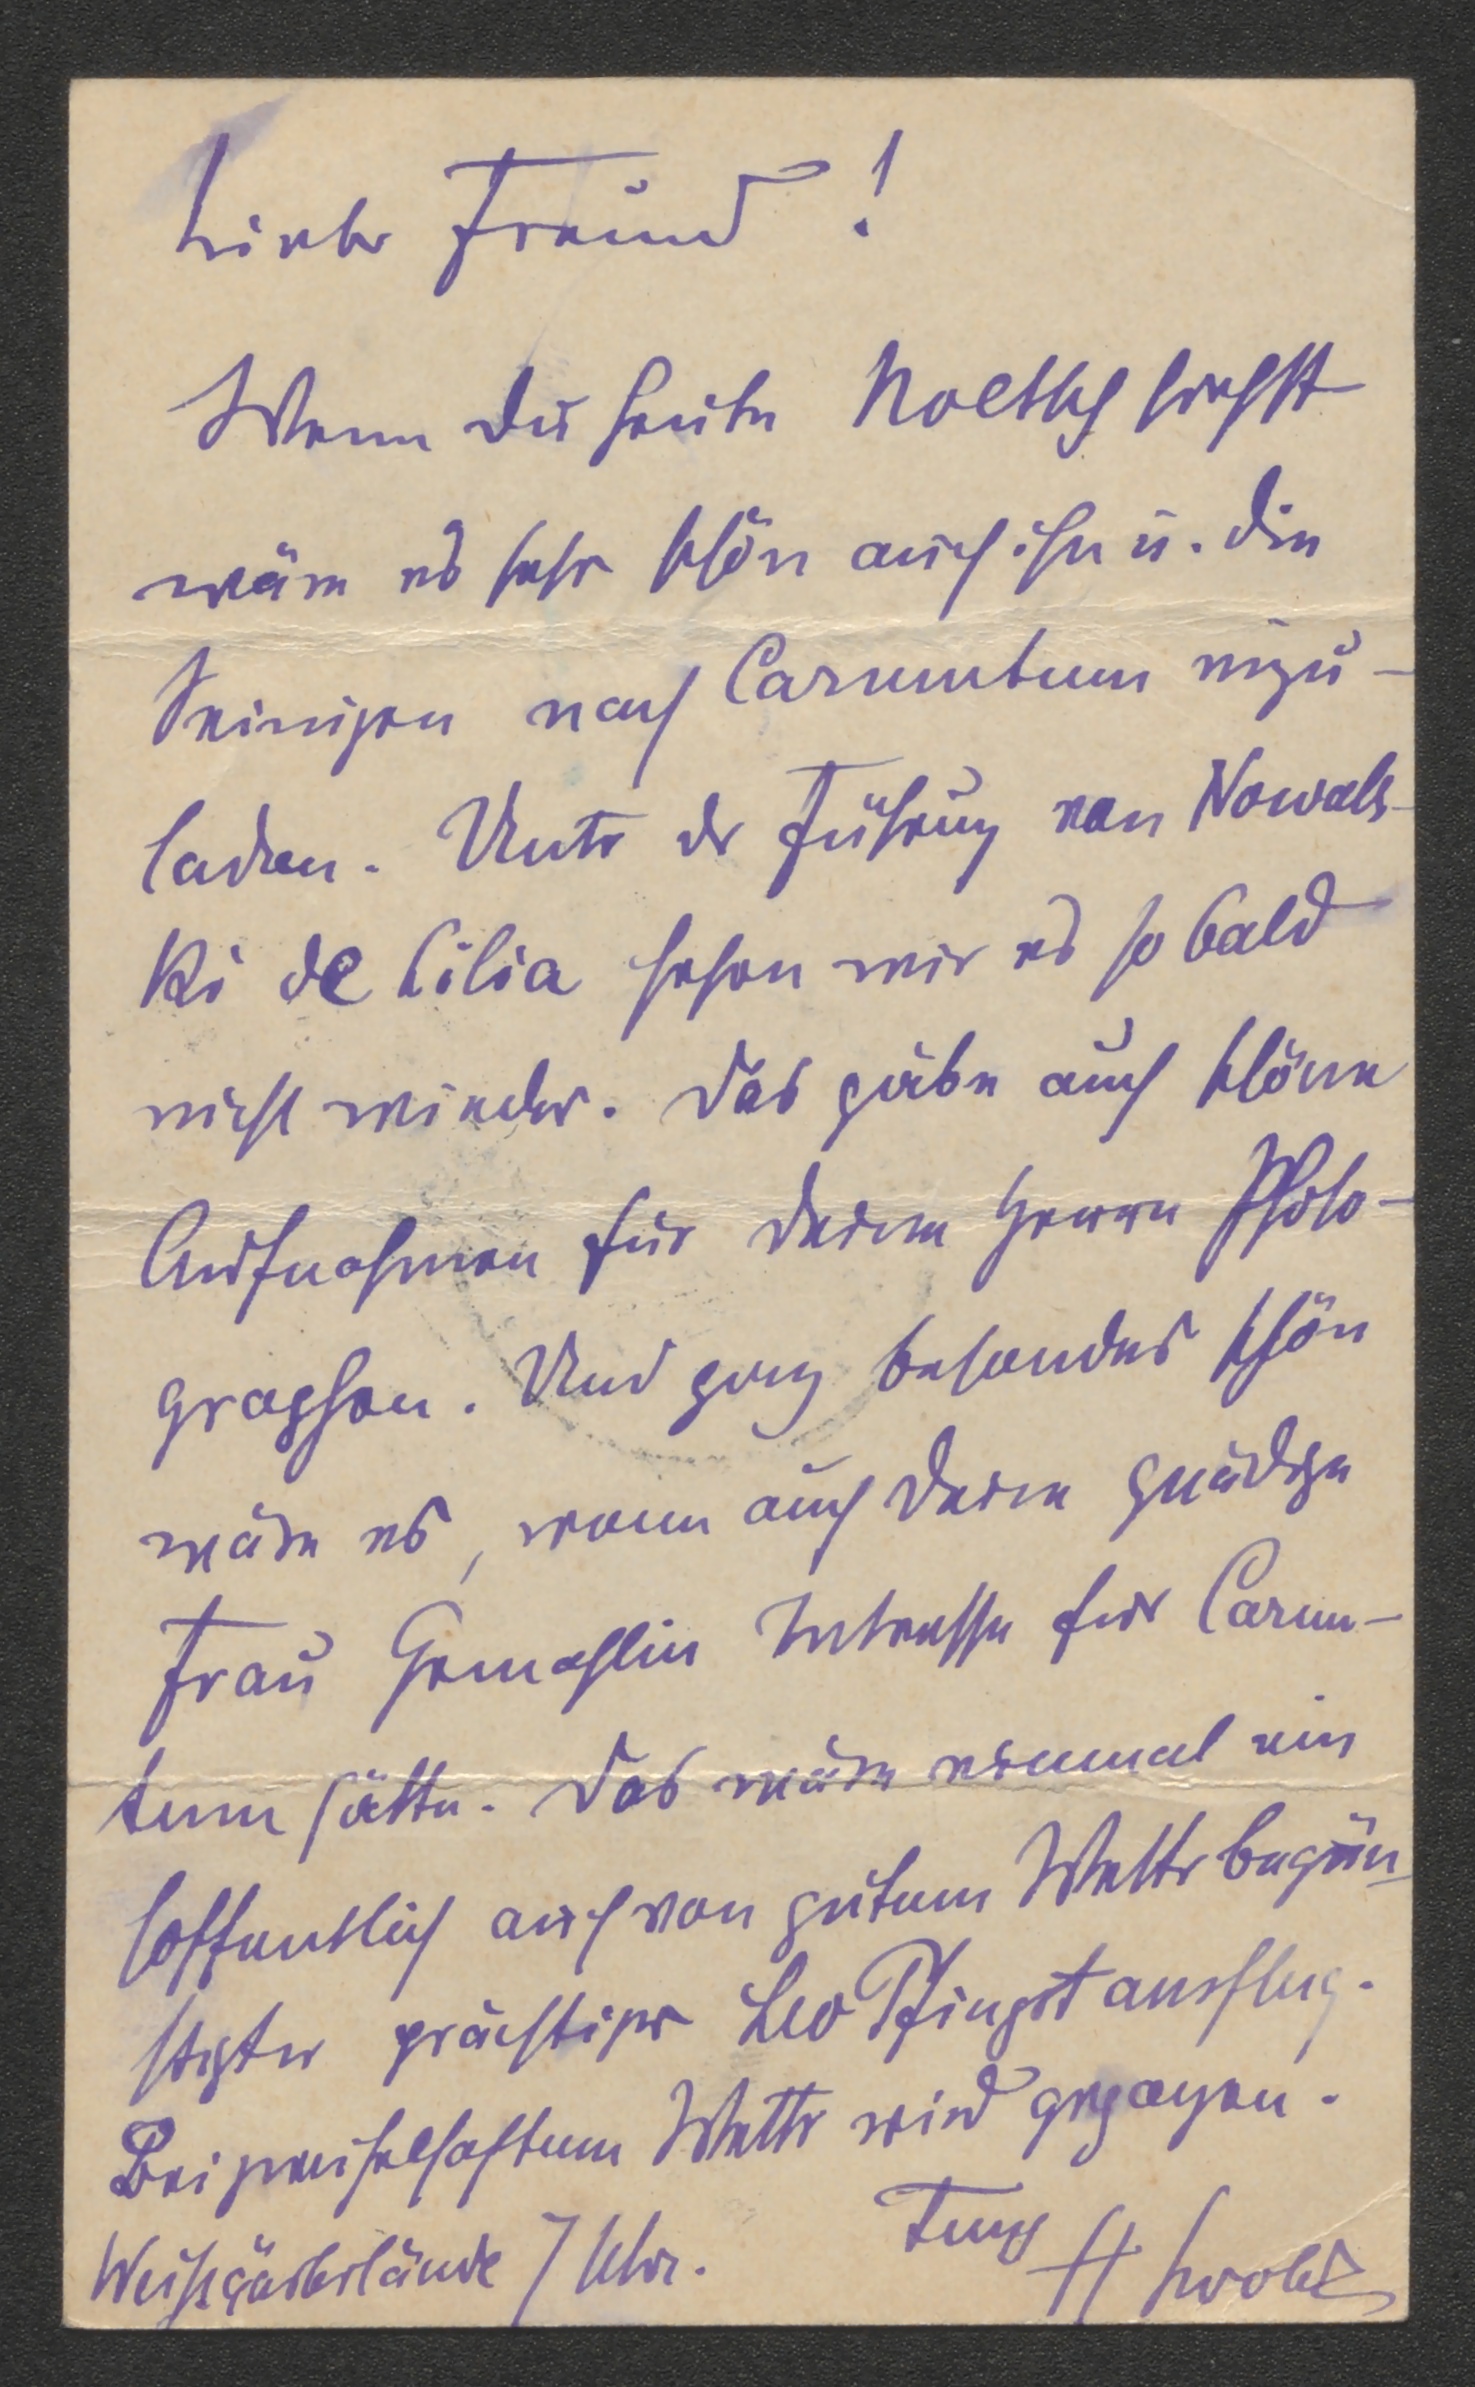 Lieber Freund!
Wenn du heute Noltsch siehst
wäre es sehr schön auch ihn u. die
Seinigen nach Carnuntum einzu-
laden. Unter der Führung von Nowals-
ki de Lilia sehen wir es so bald
nicht wieder. Das gäbe auch schöne
Aufnahmen für Deine Herren Photo-
graphen. Und ganz besonders schön
wäre es, wenn auch Deine gnädige
Frau Gemahlin Interesse für Carnun-
tum hätte. Das wäre einmal ein
hoffentlich auch von gutem Wetter begün-
stigter prächtiger Leo Pfingstausflug.
Bei zweifelhaftem Wetter wird gezogen.
Weißgärberlände 7 Uhr. Treu H Swoboda